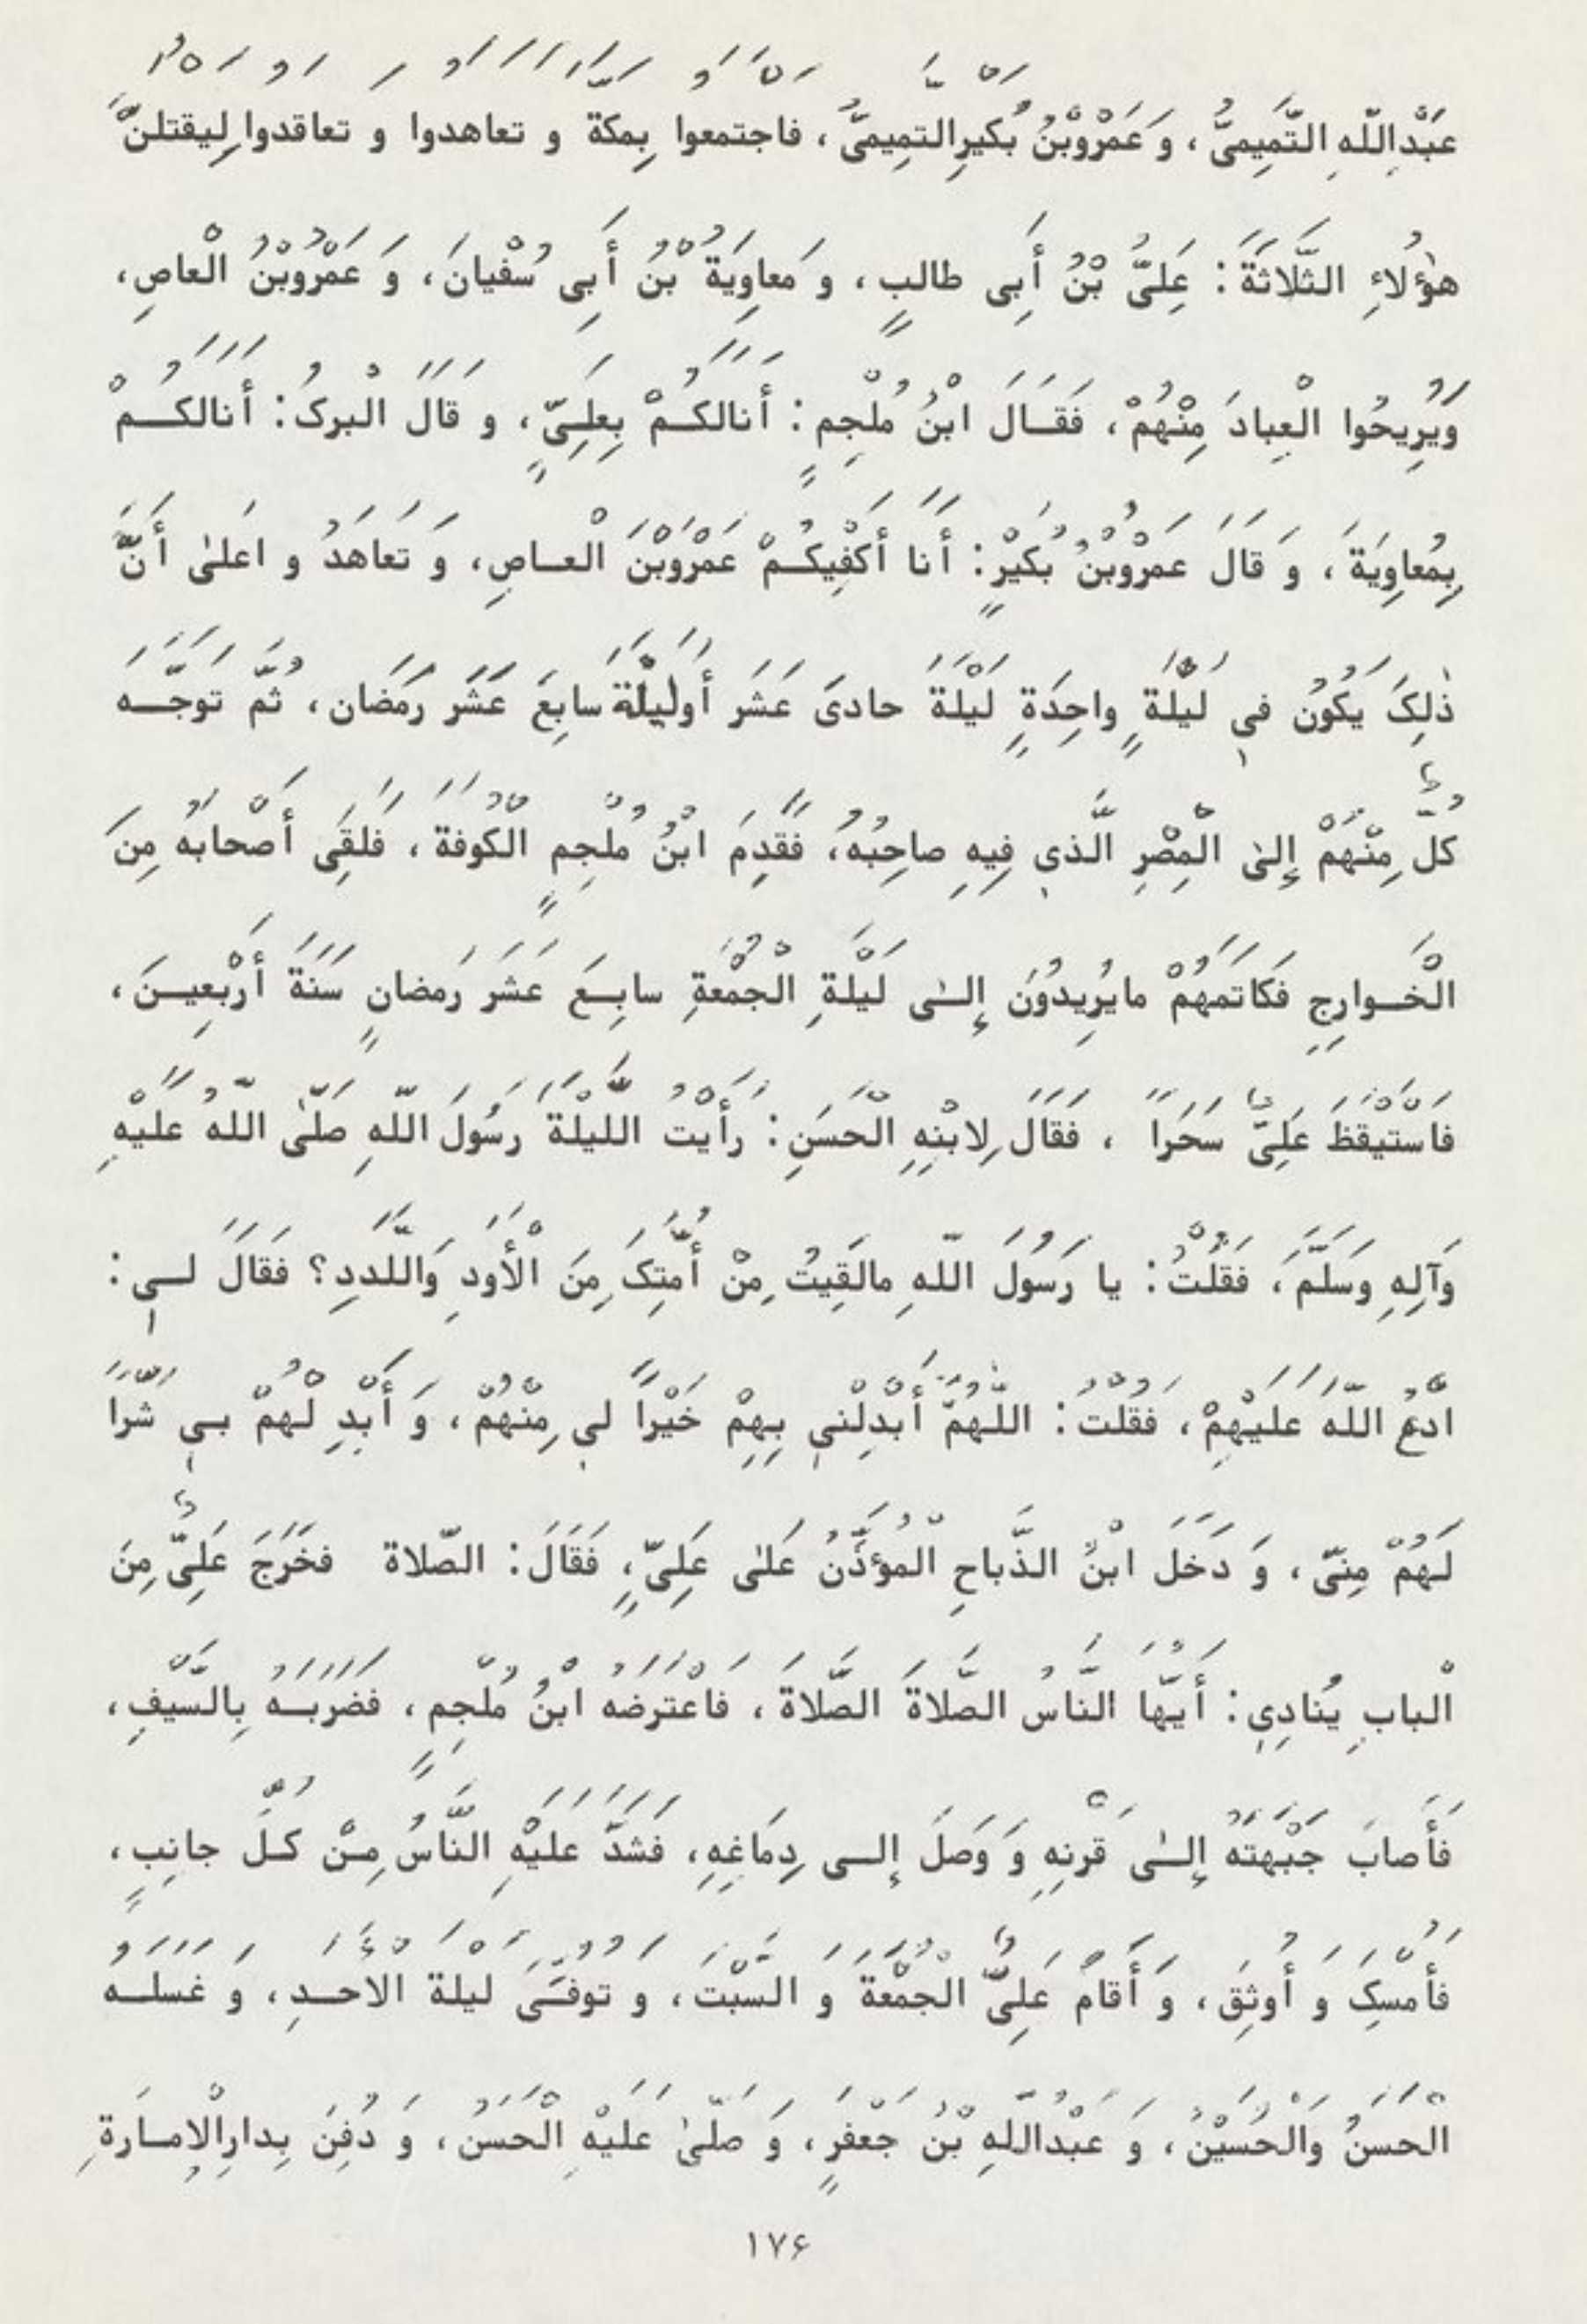 عَبْدِاللّهِ التَّمِيمىُّ، وَ عَمْرُوبْنُ بُكَيْرِالتَمِيمىُّ، فَاجْتَمَعُوا بِمَكَّةَ وَ تَعاهَدُوا وَ تَعاقَدُوا لِيَقْتُلُنَّ
هٰؤُلاءِ الثَّلاثَةَ: عَلِىَّ بْنُ أَبِى طالِبٍ، وَ مُعاوِيَةُ بْنُ أَبِى سُفْيانَ، وَ عَمْرُوبْنُ الْعاصِ،
وَيُرِيحُوا الْعِبادَ مِنْهُمْ، فَقَالَ ابْنُ مُلْجِمٍ: أَنَالَكُمْ بِعَلِىٍّ، وَ قَالَ الْبُرَکُ: أَنَالَكُمْ
بِمُعاوِيَةَ، وَ قَالَ عَمْرُوبْنُ بُكَيْرٍ: أَنَا أَكْفِيكُمْ عَمْرَوبْنَ الْعاصِ، وَ تَعاهَدُ و اعَلىٰ أَنَّ
ذٰلِکَ يَكُونُ فىِ لَيْلَةٍ واحِدَةٍ لَيْلَةَ حادىَ عَشَرَ أَولَيْلَةَ سابِعَ عَشَرَ رَمَضان، ثُمَّ تَوَجَّهَ
كُلٌّ مِنْهُمْ إِلىٰ الْمِصْرِ الَّذىِ فِيهِ صاحِبُهُ، فَقَدِمَ ابْنُ مُلْجِمٍ الْكُوفَةَ، فَلَقِىَ أَصْحابَهُ مِنَ
الْخَوارِجِ فَكَاتَمَهُمْ مايُرِيدُونَ إِلىٰ لَيْلَةِ الْجُمْعَةِ سابِعَ عَشَرَ رَمضانٍ سَنَةَ أَرْبَعِينَ،
فَاسْتَيْقَظَ عَلِىٌّ سَحَراً ، فَقَالَ لِابْنِهِ الْحَسَنِ: رَأَيْتُ اللَّيْلَةَ رَسُولَ اللّهِ صَلّىٰ اللّهُ عَلَيْهِ
وَآلِهِ وَسَلَّمَ، فَقُلْتُ: يا رَسُولَ اللّهِ مالَقِيتُ مِنْ أُمَّتِکَ مِنَ الْأَوَدِ وَاللَّدَدِ؟ فَقَالَ لىِ:
ادْعُ اللّهَ عَلَيْهِمْ، فَقُلْتُ: اللّهُمَّ أَبْدِلْنىِ بِهِمْ خَيْراً لىِ مِنْهُمْ، وَ أَبْدِ لْهُمْ بىِ شَرّاً
لَهُمْ مِنىّ، وَ دَخَلَ ابْنُ الذَّباحِ الْمُؤَذَّنُ عَلىٰ عَلِىٍّ، فَقَالَ: الصّلاة فَخَرَجَ عَلِىٌّ مِنَ
الْبابِ يُنادِىِ: أَيُّهَا النَّاسُ الصَّلاةَ الصَّلاةَ، فَاعْتَرَضَهُ ابْنُ مُلْجِمٍ، فَضَرَبَهُ بِالسَّيْفِ،
فَأَصابَ جَبْهَتَهُ إِلىٰ قَرْنِهِ وَ وَصَلَ إِلى دِمَاغِهِ، فَشَدَّ عَلَيْهِ النَّاسُ مِنْ كُلِّ جانِبٍ،
فَأُمْسِکَ وَ أُوثِقَ، وَ أَقامَ عَلِىٌّ الْجُمْعَةَ وَ السَّبْتَ، وَ تُوفُّىَ لَيْلَةَ الْأَحَدِ، وَ غَسَلَهُ
الْحَسَنُ وَالْحُسَيْنُ، وَ عَبْدُاللّهِ بْنُ جَعْفَرٍ، وَ صَلّىٰ عَلَيْهِ الْحَسَنُ، وَ دُفِنَ بِدارِالْإِمارَةِ
۱۷۶